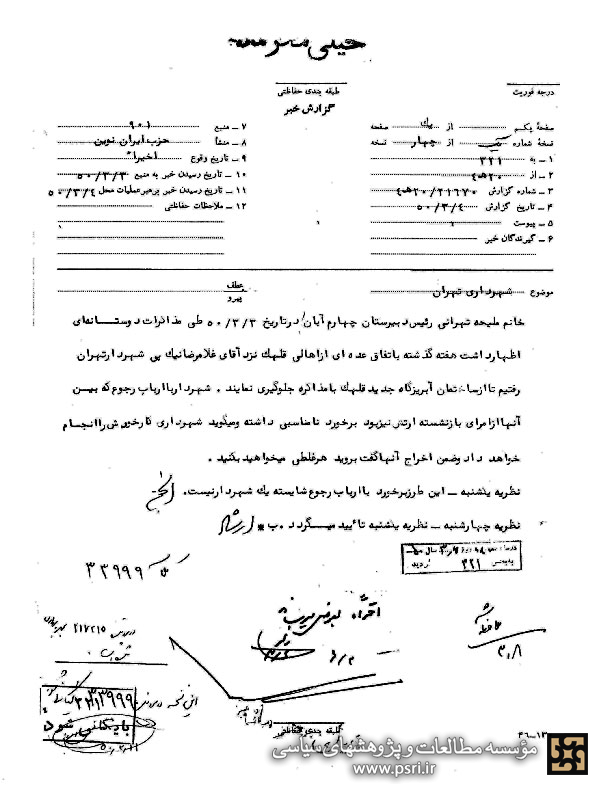 خیلی محرمانه
درجه فوریت
طبقه بندی حفاظتی
گزارش خبر
صفحه یکم از یك صفحه
نسخه شماره یک از چهار نسخه
۱ ـ به ۳۲۱
۲ ـ از ۲۰هـ۴
۳ ـ شماره گزارش ۲۰/۲۱۶۷۰هـ۴
۴ ـ تاریخ گزارش ۵۰/۳/۴
۵ ـ پیوست
۶ ـ گیرندگان خبر
۷ ـ منبع ۹۰۱
۸ ـ منشأ حزب ایران نوین
۹ ـ تاریخ وقوع اخیرا"
۱۰ ـ تاریخ رسیدن خبر به منبع ۵۰/۳/۳
۱۱ ـ تاریخ رسیدن خبر برهبر عملیات محل ۵۰/۳/۴
۱۲ ـ ملاحظات حفاظتی
موضوع شهرداری تهران
عطف
پیرو
خانم ملیحه تهرانی رئیس دبیرستان چهارم آبان در تاریخ ۵۰/۳/۳ طی مذاکرات دوستانه‌ای
اظهار داشت هفته گذشته باتفاق عده ای از اهالی قلهك نزد آقای غلامرضا نیك پی شهردار تهران
رفتیم تا از ساختمان آبریزگاه جدید قلهك با مذاکره جلوگیری نمایند . شهردار با ارباب رجوع که بین
آنها از امرای بازنشسته ارتش نیز بود برخورد نامناسبی داشته و میگوید شهرداری کار خودش را انجام
خواهد داد و ضمن اخراج آنها گفت بروید هر غلطی میخواهید بکنید .
نظریه یکشنبه ـ این طرز برخورد با ارباب رجوع شایسته یك شهردار نیست .
نظریه چهارشنبه ـ نظریه یکشنبه تائید میگردد . ب *
۳۲۱
۳۳۹۹۹
۳/۸
۲۱۷۲۱۵
۳۳۹۹۹
بایگانی شود
طبقه بندی حفاظتی
مؤسسه مطالعات و پژوهشهای سیاسی
www.psri.ir